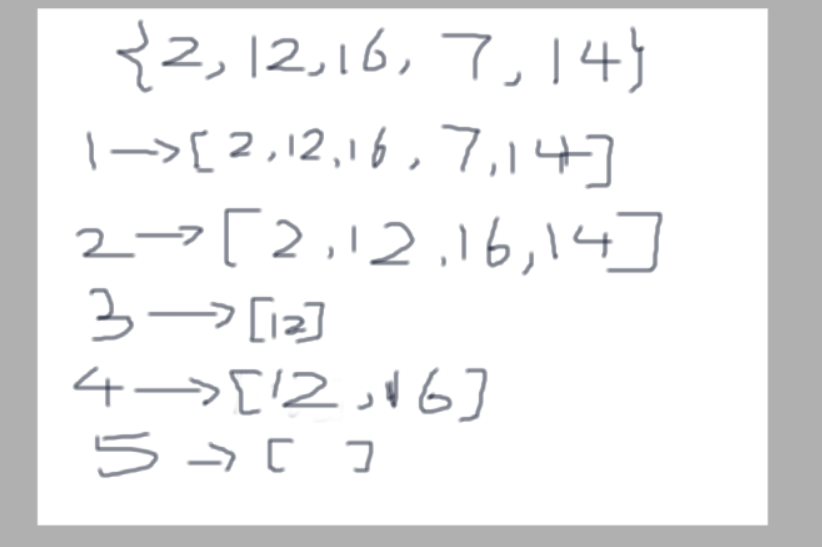 {2, 12, 16, 7, 14}
1 → [2, 12, 16, 7, 14]
2 → [2, 12, 16, 14]
3 → [12]
4 → [12, 16]
5 → [ ]